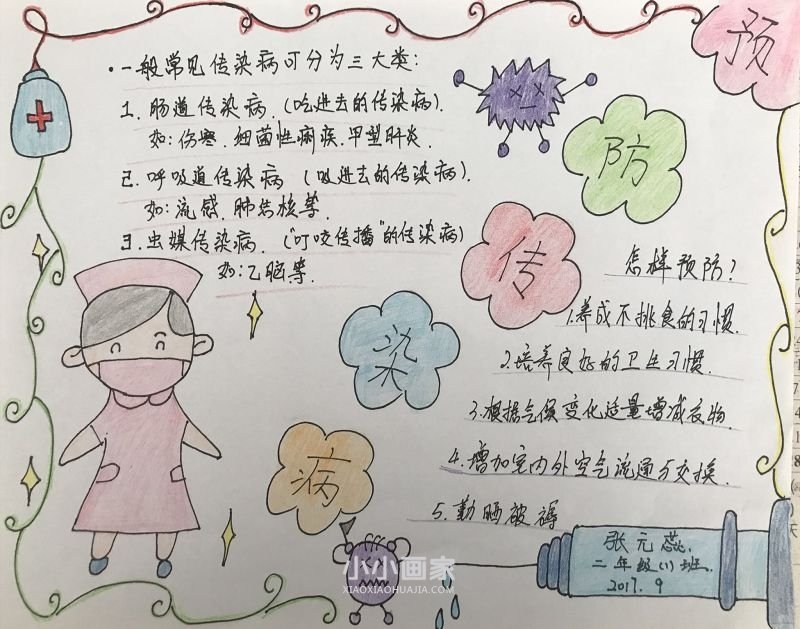 预
防
传
染
病
·一般常见传染病可分为三大类:
1. 肠道传染病.(吃进去的传染病).
如:伤寒.细菌性痢疾.甲型肝炎.
2. 呼吸道传染病 (吸进去的传染病).
如:流感.肺结核等.
3. 虫媒传染病.("叮咬传播"的传染病)
如:乙脑等.
怎样预防?
1.养成不挑食的习惯.
2.培养良好的卫生习惯.
3.根据气候变化适量增减衣物.
4.增加室内外空气流通与交换.
5.勤晒被褥
张元蕊
二年级(1)班.
2017.9
小小画家
XIAOXIAOHUAJIA.COM